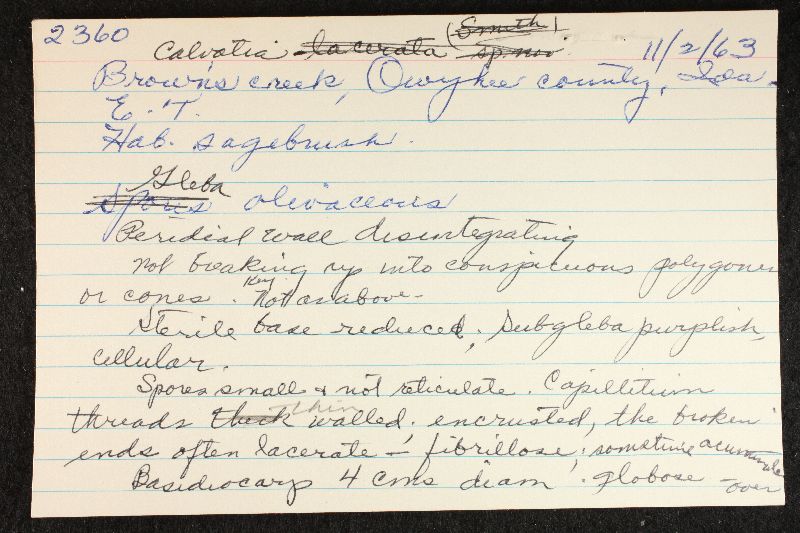 2360
Calvatia lacerata (Smith) sp. nov. 11/2/63
Browns creek, Owyhee county, Ida.
E. T.
Hab. sagebrush.
Gleba
Spores olivaceous
Peridial wall disintegrating
not breaking up into conspicuous polygones
or cones. Key Not as above-
Sterile base reduced; Subgleba purplish,
cellular.
Spores small & not reticulate. Capillitium
threads thick thin walled, encrusted, the broken
ends often lacerate - fibrillose; sometime acuminate
Basidiocarp 4 cms diam. globose -over